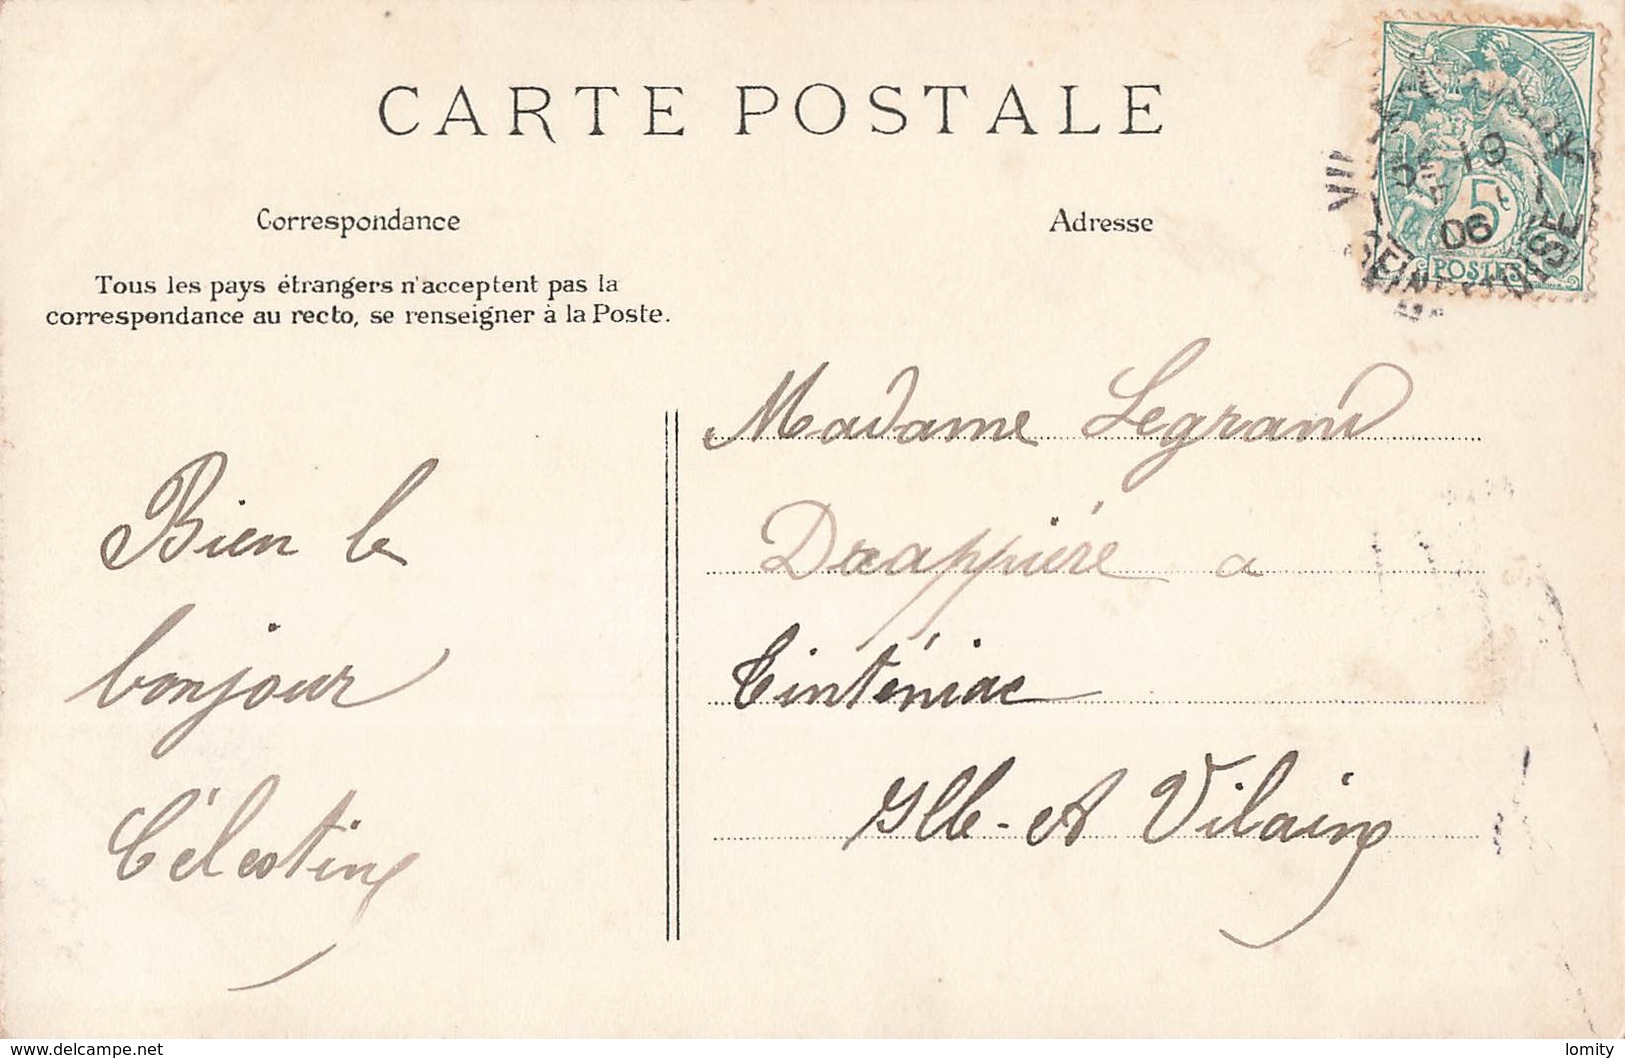 CARTE POSTALE
Correspondance
Adresse
Tous les pays étrangers n'acceptent pas la
correspondance au recto, se renseigner à la Poste.
19
06
5c
POSTES
SEINE ET OISE
Bien le
bonjour
Célestine
Madame Legrand
Drappière a
Tinténiac
Ille-et Vilaine
www.delcampe.net
lomity